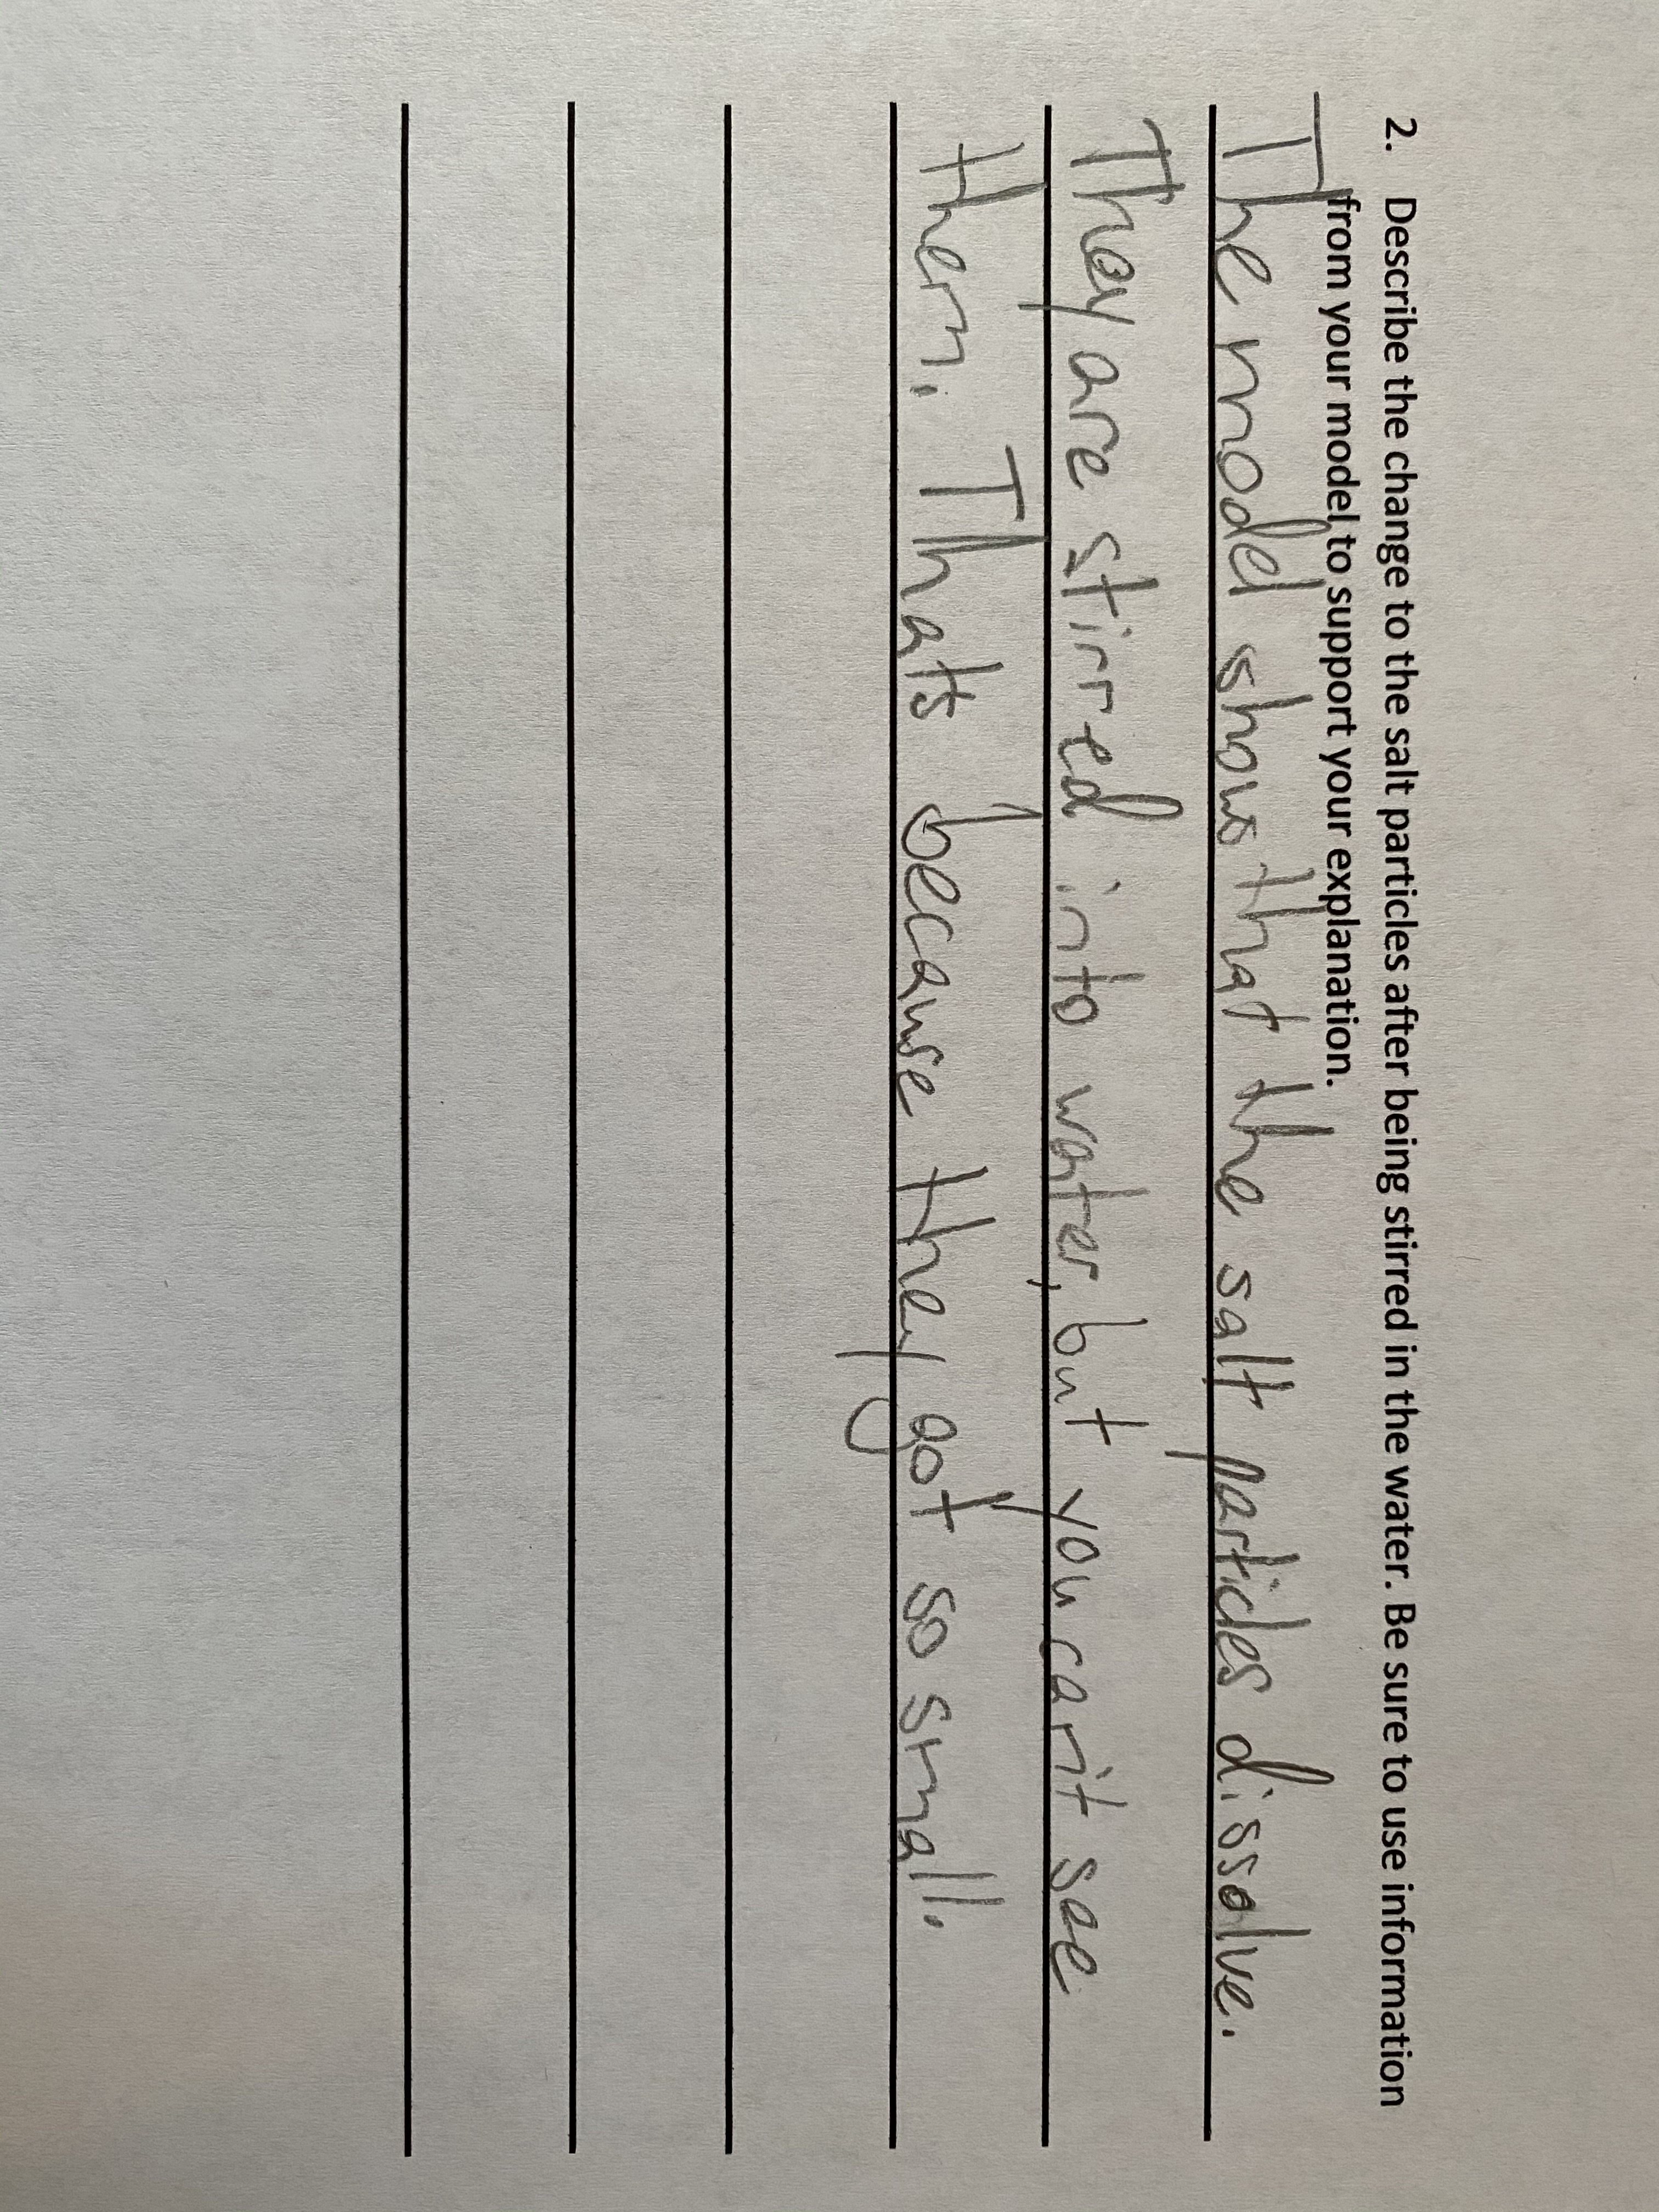 2. Describe the change to the salt particles after being stirred in the water. Be sure to use information
from your model, to support your explanation.
The model shows that the salt particles dissolve.
They are stirred into water, but you can't see
them. Thats because they got so small.